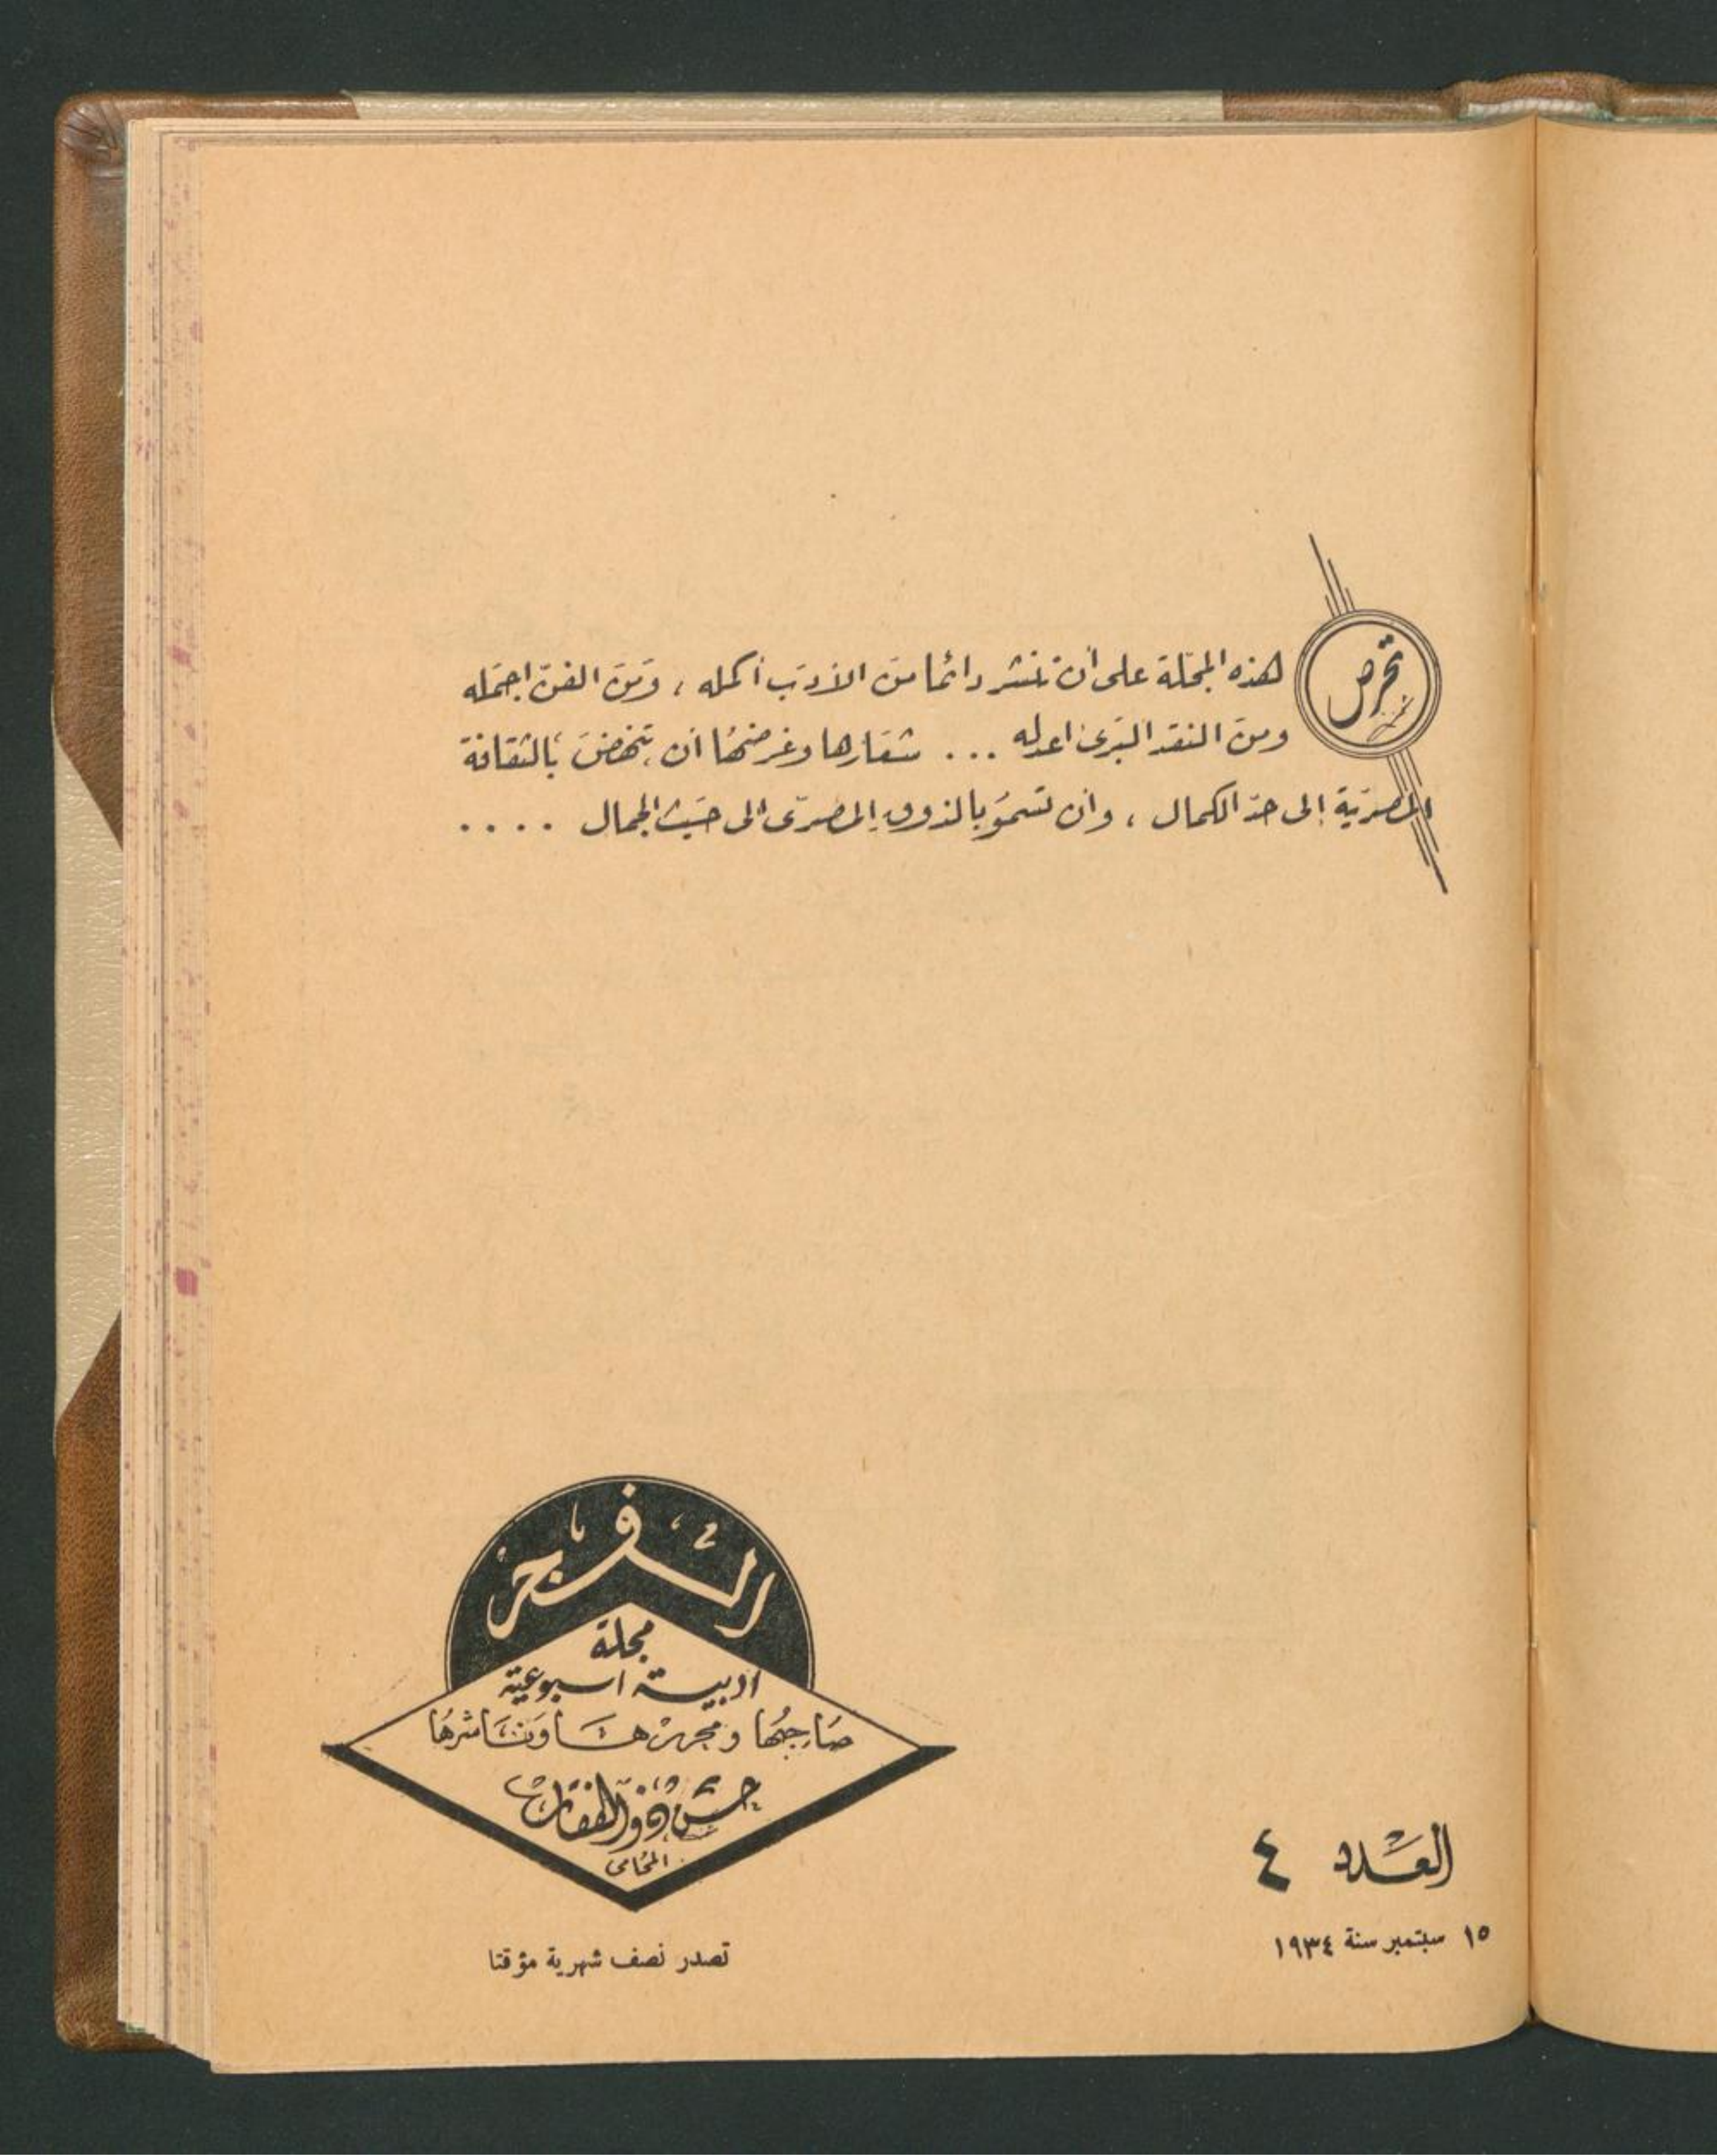 تحرص هذه المجلة على أن تنشر دائما من الأدب أكمله ، ومن الفن اجمله
ومن النقد البرئ اعدله ... شعارها وغرضها أن تنهض بالثقافة
المصرية إلى حد الكمال ، وأن تسمو بالذوق المصرى الى حيث الجمال ....
الفجر
مجلة
ادبية اسبوعية
صاحبها ومحررها وناشرها
حسن ذو الفقار
المحامى
تصدر نصف شهرية مؤقتا
العدد ٤
١٥ سبتمبر سنة ١٩٣٤